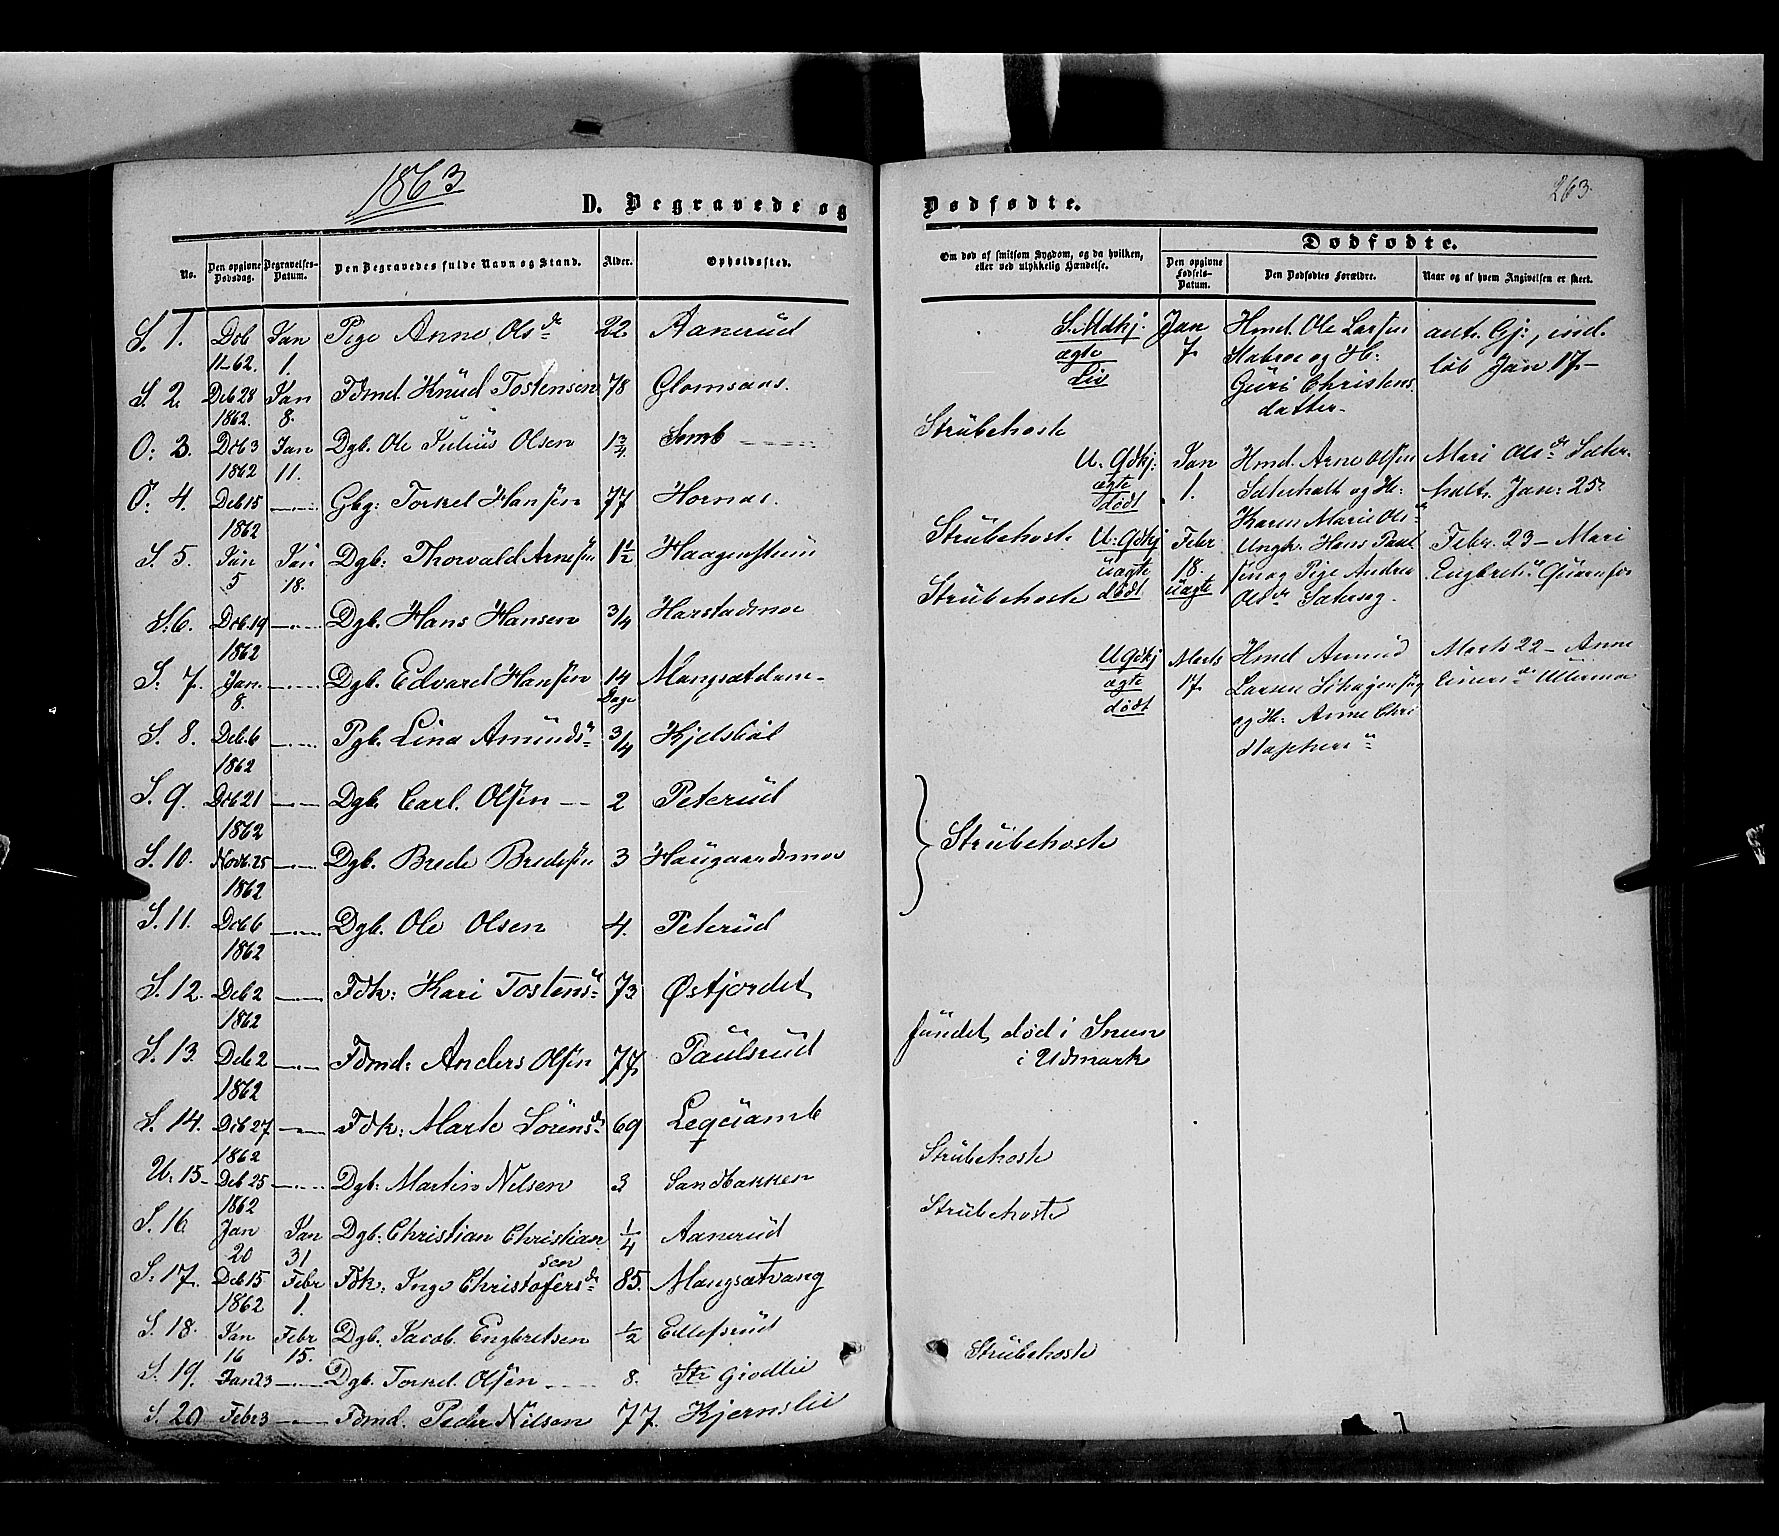 1863
263.
D. Begravede og Dødfødte.
Dødfødte.
No.
Den opgivne Dødsdag.
Begravelses-Datum.
Den Begravedes fulde Navn og Stand.
Alder.
Opholdssted.
Om død af smitsom Sygdom, og da hvilken, eller ved ulykkelig Hændelse.
Den opgivne Fødsels-Datum.
Den Dødfødtes Forældre.
Naar og af hvem Angivelsen er skeet.
S. 1. Deb Jan Pige Anne Olsdr 22 Aanerud
11-62. 1.
S 2 Deb 28 Jan Fdmd. Knud Tostensen 78 Glomsaas.
1862. 8.
O: 3. Deb 3 Jan Dgb. Ole Julius Olsen 1 3/4 Somb
1862 11.
O: 4. Deb 15 Gbg: Torkel Hansen 77 Hornas.
1862
S 5. Jan Jan Dgb: Thorvald Arnesen 1 1/2 Haagenstuin
5 18.
S: 6. Deb. 19 Dgb. Hans Hansen 3/4 Harstadmoe
1862
S: 7. Jan. Dgb. Edvard Hansen 14 Mangsætdam
8. Dage
S. 8. Deb. 6 Pgb. Lina Amunds 3/4 Kjelsbøl
1862
S. 9. Deb 21 Dgb. Carl. Olsen 2 Peterud
1862
S. 10. Novb. 25 Dgb. Brede Bredesen 3 Haugaardsmoe
1862
S. 11. Deb 6 Dgb. Ole Olsen 4. Peterud
1862
S. 12. Deb 2 Fdk: Kari Tostens 73 Østjordet
1862
S. 13. Deb 2 Fdmd: Anders Olsen 77 Paulsrud
1862
S. 14. Deb 27 Fdk: Marte Sørensdr 69
1862
U: 15 Deb 25 Dgb: Martin Nilsen 3 Sandbakken
1862
S. 16 Jan Jan Dgb: Christian Christian 1/4 Aanerud
20 31 sen
S: 17. Deb 15 Febr Fdk: Inge Christofersdr 85. Mangsætvang
1862 1.
S. 18. Jan Febr Dgb. Jacob. Engbretsen 1/2 Ellefsrud
16 15.
S. 19. Jan 23 Dgb. Torkel Olsen 8. Str Giødlie
S. 20 Febr 3 Fdmd. Peder Nilsen 77. Kjernslie
S. Mdkj. Jan Hmd. Ole Larsen ant. Gj:, ind.
ægte 7. og H: løb Jan 17.
Liv Guri Christens
datter
Strubehoste
U. Gdkj. Jan Hmd. Arne Olsen Mari Olsdr Sæter.
ægte 1. Sæterholt og H: holt. Jan: 25
dødt Karen Marie Ols
Strubehoste U. Gdkj Febr Ungk. Hans Paul Febr. 23 Mari
uægte 18. sen og Pige Andrea Engbretsd
Strubehoste dødt uægte Olsdr Sæterseg.
U Gdkj Marts Hmd Amund Marts 22 Anne
ægte 17 Larsen
dødt og H: Anne Chri
Strubehoste
fundet død i Sneen
i Udmark
Strubehoste
Strubehoste
Strubehoste